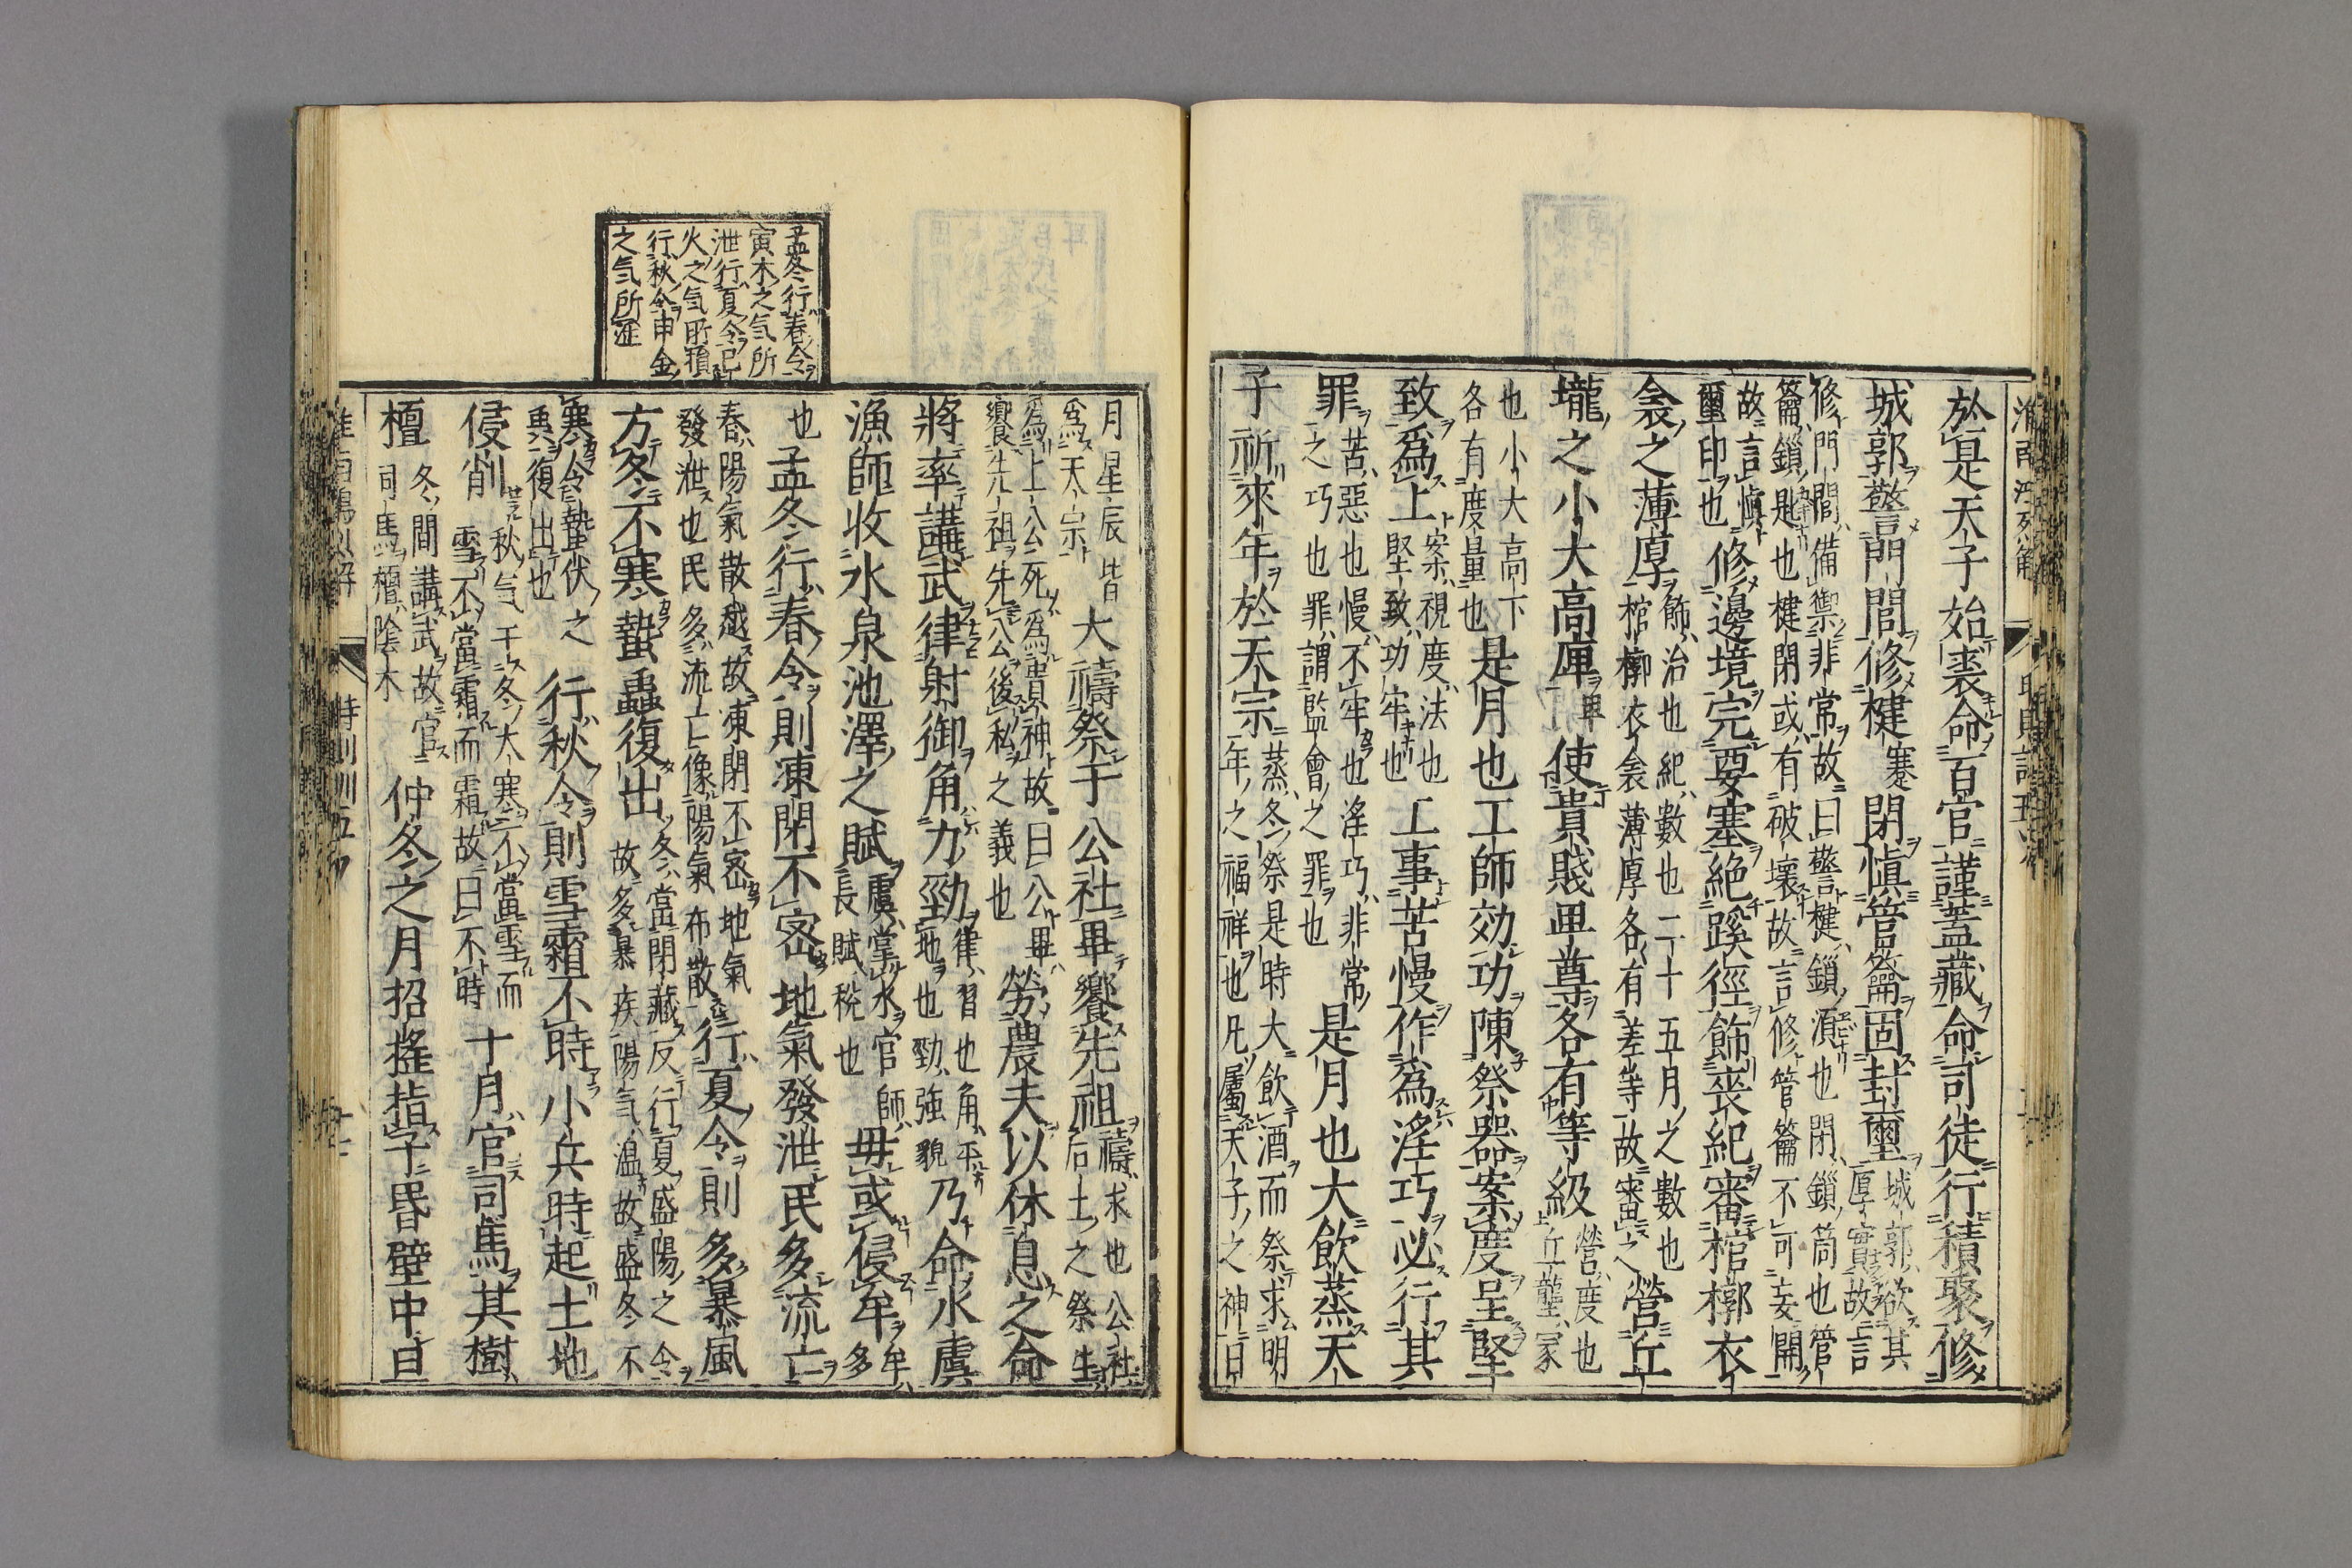 於是天子始裘命百官謹蓋藏命司徒行積聚修
城郭警門閭修楗蹇閉慎管籥固封璽城郭欲其厚實故言
修門閭備禦非常故曰警楗鎖須也閉鎖筒也管
籥鎖匙也楗閉或有破壞故言修管籥不可妄開
故言慎璽印也修邊境完要塞絕蹊徑飾喪紀審棺槨衣
衾之薄厚飾治也紀數也二十五月之數也棺槨衣衾薄厚各有差等故審之營丘
壠之小大高庳使貴賤卑尊各有等級營度也丘壟冢
也小大高下各有度量也是月也工師効功陳祭器案度呈堅
致為上案視度法也堅致功牢也工事苦慢作為淫巧必行其
罪苦惡也慢不牢也淫巧非常之巧也罪謂監會之罪也是月也大飲蒸天
子祈來年於天宗蒸冬祭是時大飲酒而祭求明年之福祥也凡屬天子之神日
孟冬行春令
寅木之气所
泄行夏令巳
火之气所損
行秋令申金
之气所
月星辰皆為天宗大禱祭于公社畢饗先祖禱求也公社后土之祭生
為上公死為貴神故曰公畢饗先祖先公後私之義也勞農夫以休息之命
將率講武律射御角力勁律習也角平地也勁強貌乃命水虞
漁師收水泉池澤之賦虞掌水官師長賦稅也毋或侵牟牟多
也孟冬行春令則凍閉不密地氣發泄民多流亡
春陽氣散越故凍閉不密地氣發泄也民多流亡像陽氣布散行夏令則多暴風
方冬不寒蟄蟲復出冬當閉藏反行夏盛陽之令故多暴疾陽气溫故盛冬不
寒令蟄伏之復出也行秋令則雪霜不時小兵時起土地
侵削秋气干冬大寒不當雪而雪不當霜而霜故曰不時十月官司馬其樹
檀冬間講武故官司馬檀陰木仲冬之月招搖指子昏壁中旦